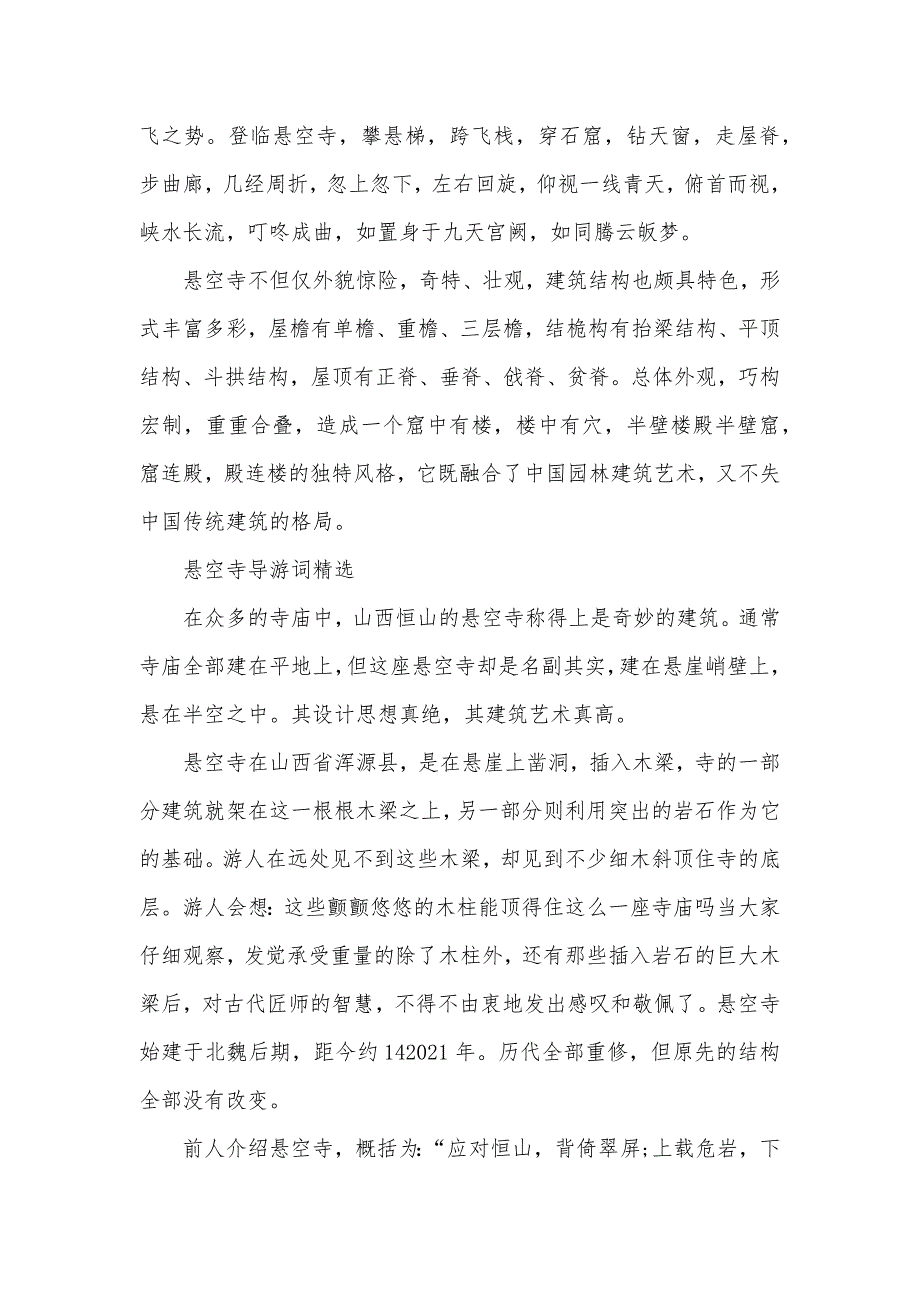 飞之势。登临悬空寺，攀悬梯，跨飞栈，穿石窟，钻天窗，走屋脊，
步曲廊，几经周折，忽上忽下，左右回旋，仰视一线青天，俯首而视，
峡水长流，叮咚成曲，如置身于九天宫阙，如同腾云皈梦。
悬空寺不但仅外貌惊险，奇特、壮观，建筑结构也颇具特色，形
式丰富多彩，屋檐有单檐、重檐、三层檐，结桅构有抬梁结构、平顶
结构、斗拱结构，屋顶有正脊、垂脊、戗脊、贫脊。总体外观，巧构
宏制，重重合叠，造成一个窟中有楼，楼中有穴，半壁楼殿半壁窟，
窟连殿，殿连楼的独特风格，它既融合了中国园林建筑艺术，又不失
中国传统建筑的格局。
悬空寺导游词精选
在众多的寺庙中，山西恒山的悬空寺称得上是奇妙的建筑。通常
寺庙全部建在平地上，但这座悬空寺却是名副其实，建在悬崖峭壁上，
悬在半空之中。其设计思想真绝，其建筑艺术真高。
悬空寺在山西省浑源县，是在悬崖上凿洞，插入木梁，寺的一部
分建筑就架在这一根根木梁之上，另一部分则利用突出的岩石作为它
的基础。游人在远处见不到这些木梁，却见到不少细木斜顶住寺的底
层。游人会想：这些颤颤悠悠的木柱能顶得住这么一座寺庙吗当大家
仔细观察，发觉承受重量的除了木柱外，还有那些插入岩石的巨大木
梁后，对古代匠师的智慧，不得不由衷地发出感叹和敬佩了。悬空寺
始建于北魏后期，距今约 142021 年。历代全部重修，但原先的结构
全部没有改变。
前人介绍悬空寺，概括为：“应对恒山，背倚翠屏;上载危岩，下